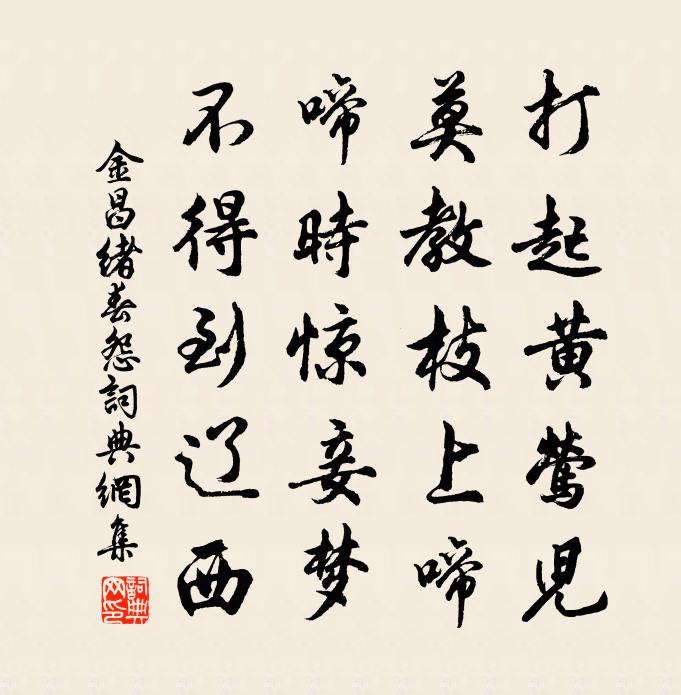 打起黄鶯児
莫教枝上啼
啼時惊妾梦
不得到辽西
金昌緒春怨詞典網集
詞典网印